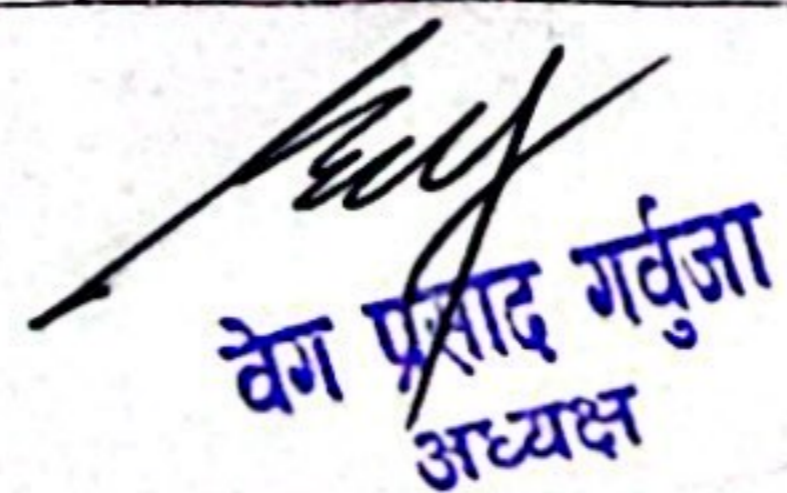 वेग प्रसाद गर्वुजा
अध्यक्ष